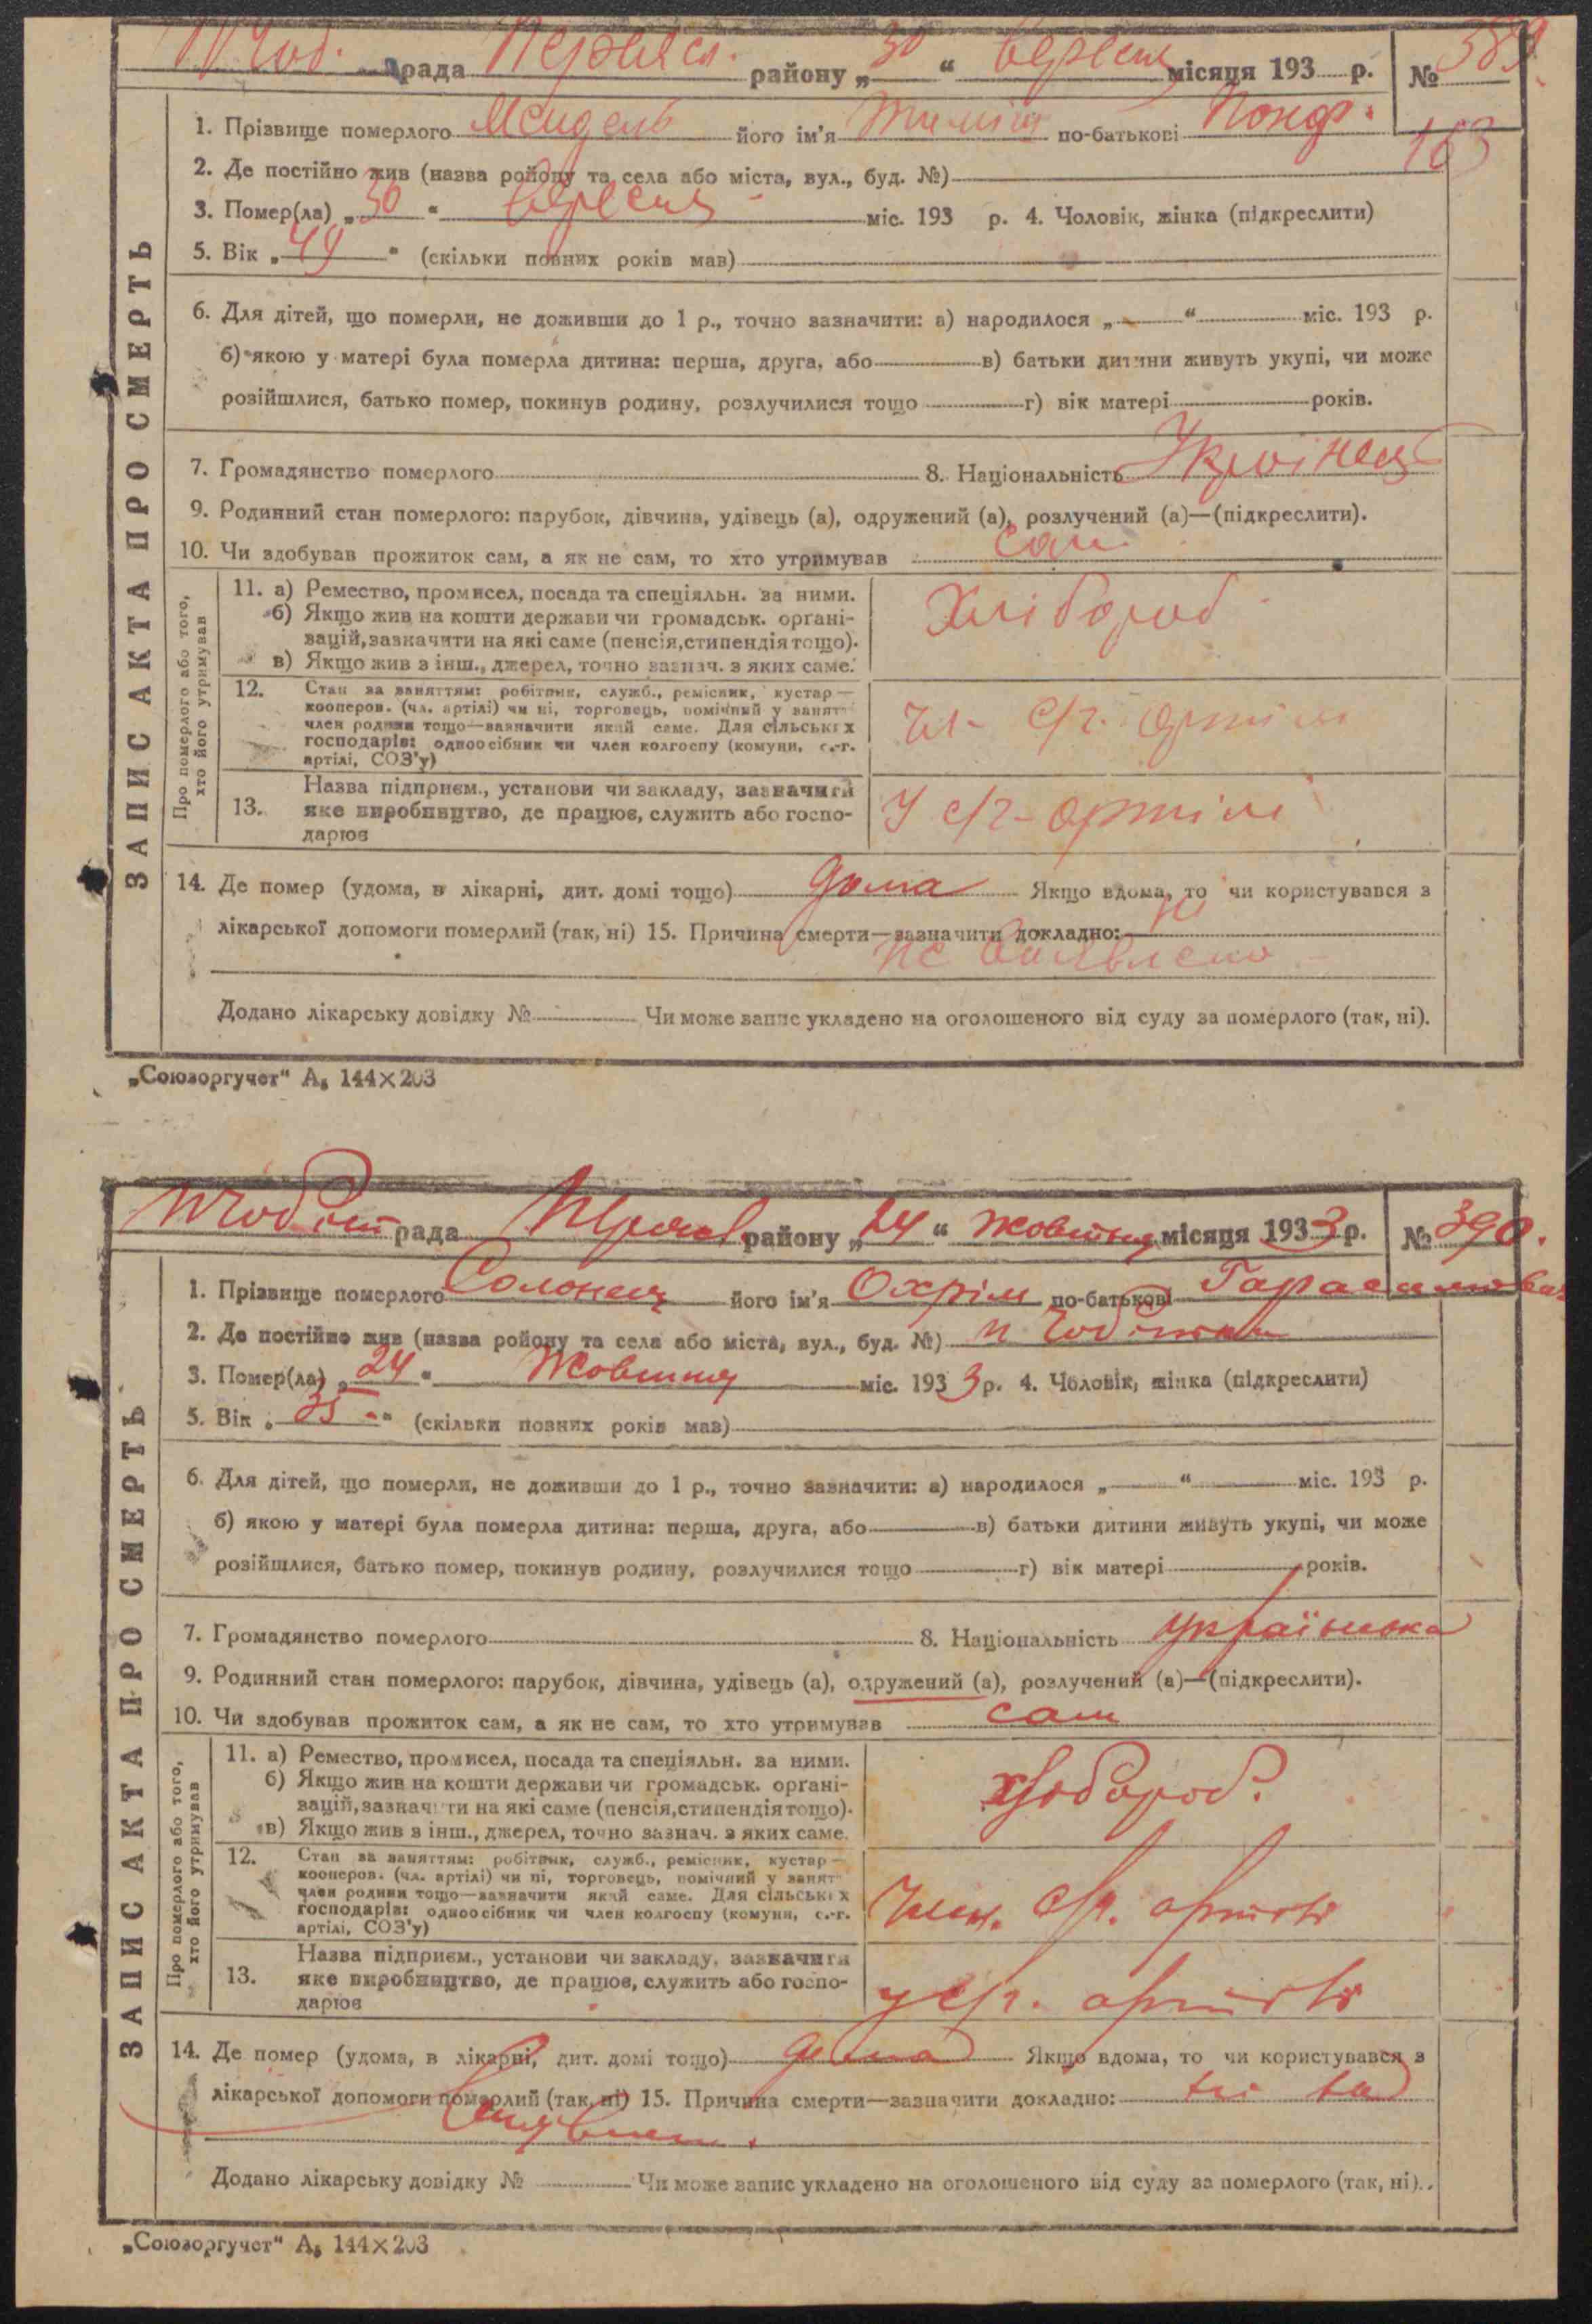 рада району „ 30 “ вересня місяця 193 р. № 389.
163
ЗАПИС АКТА ПРО СМЕРТЬ
1. Прізвище померлого його ім'я по-батькові
2. Де постійно жив (назва району та села або міста, вул., буд. №)
3. Помер(ла) „ 30 “ вересня міс. 193 р. 4. Чоловік, жінка (підкреслити)
5. Вік „ 49 “ (скільки повних років мав)
6. Для дітей, що померли, не доживши до 1 р., точно зазначити: а) народилося „ “ міс. 193 р.
б) якою у матері була померла дитина: перша, друга, або в) батьки дитини живуть укупі, чи може
розійшлися, батько помер, покинув родину, розлучилися тощо г) вік матері років.
7. Громадянство померлого 8. Національність Українець
9. Родинний стан померлого: парубок, дівчина, удівець (а), одружений (а), розлучений (а)—(підкреслити).
10. Чи здобував прожиток сам, а як не сам, то хто утримував сам
Про померлого або того, хто його утримував
11. а) Ремество, промисел, посада та спеціяльн. за ними.
б) Якщо жив на кошти держави чи громадськ. органі-
зацій, зазначити на які саме (пенсія, стипендія тощо).
в) Якщо жив з інш., джерел, точно зазнач. з яких саме.
Хлібороб
12. Стан за заняттям: робітник, служб., ремісник, кустар—
кооперов. (чл. артілі) чи ні, торговець, помічний у занят
член родини тощо—зазначити який саме. Для сільських
господарів: одноосібник чи член колгоспу (комуни, с.-г.
артілі, СОЗ'у)
Чл. с/г. артілі
13. Назва підприєм., установи чи закладу, зазначити
яке виробництво, де працює, служить або госпо-
дарює
У с/г. артілі
14. Де помер (удома, в лікарні, дит. домі тощо) дома Якщо вдома, то чи користувався з
лікарської допомоги померлий (так, ні) 15. Причина смерти—зазначити докладно: ні
не виявлено
Додано лікарську довідку № Чи може запис укладено на оголошеного від суду за померлого (так, ні).
„Союзоргучет“ А₅ 144×203
рада району „ 24 “ жовтня місяця 1933 р. № 390.
ЗАПИС АКТА ПРО СМЕРТЬ
1. Прізвище померлого Солонец його ім'я Охрім по-батькові Гарасимович
2. Де постійно жив (назва району та села або міста, вул., буд. №)
3. Помер(ла) „ 24 “ Жовтня міс. 193 3 р. 4. Чоловік, жінка (підкреслити)
5. Вік „ 35 “ (скільки повних років мав)
6. Для дітей, що померли, не доживши до 1 р., точно зазначити: а) народилося „ “ міс. 193 р.
б) якою у матері була померла дитина: перша, друга, або в) батьки дитини живуть укупі, чи може
розійшлися, батько помер, покинув родину, розлучилися тощо г) вік матері років.
7. Громадянство померлого 8. Національність українська
9. Родинний стан померлого: парубок, дівчина, удівець (а), одружений (а), розлучений (а)—(підкреслити).
10. Чи здобував прожиток сам, а як не сам, то хто утримував сам
Про померлого або того, хто його утримував
11. а) Ремество, промисел, посада та спеціяльн. за ними.
б) Якщо жив на кошти держави чи громадськ. органі-
зацій, зазначити на які саме (пенсія, стипендія тощо).
в) Якщо жив з інш., джерел, точно зазнач. з яких саме.
12. Стан за заняттям: робітник, служб., ремісник, кустар—
кооперов. (чл. артілі) чи ні, торговець, помічний у занят
член родини тощо—зазначити який саме. Для сільських
господарів: одноосібник чи член колгоспу (комуни, с.-г.
артілі, СОЗ'у)
Член. с/г. артілі
13. Назва підприєм., установи чи закладу, зазначити
яке виробництво, де працює, служить або госпо-
дарює
у с/г. артілі
14. Де помер (удома, в лікарні, дит. домі тощо) дома Якщо вдома, то чи користувався з
лікарської допомоги померлий (так, ні) 15. Причина смерти—зазначити докладно:
Додано лікарську довідку № Чи може запис укладено на оголошеного від суду за померлого (так, ні).
„Союзоргучет“ А₅ 144×203